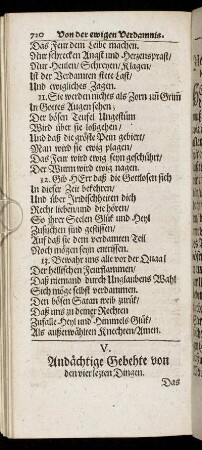 710 Von der ewigen Verdamnis.
Das Feur dem Leibe machen.
Nur schrecken Angst und Hertzensprast/
Nur Heulen/Schreyen/Klagen/
Ist der Verdamten stete Last/
Und ewigliches Zagen.
11. Sie werden nichts als Zorn uñ Grim̃
In Gottes Augen sehen/
Der bösen Teufel Ungestüm
Wird über sie losgehen/
Und daß die gröste Pein gebiert/
Man wird sie ewig plagen/
Das Feur wird ewig seyn geschührt/
Der Wurm wird ewig nagen.
12. Gib HErr daß die Gottlosen sich
In dieser Zeit bekehren/
Und über Irrdischheiten dich
Recht lieben/und die hören/
So ihrer Seelen Glük und Heyl
Zusuchen sind geflissen/
Auf daß sie dem verdamten Teil
Noch mögen seyn entrissen.
13. Bewahr uns alle vor der Quaal
Der hellischen Feurflammen/
Daß niemand durch Unglaubens Wahl
Sich möge selbst verdammen.
Den bösen Satan treib zurük/
Daß uns zu deiner Rechten
Zufalle Heyl und Himmels Glük/
Als außerwählten Knechten/Amen.
V.
Andächtige Gebehte von
den vier letzten Dingen.
Das